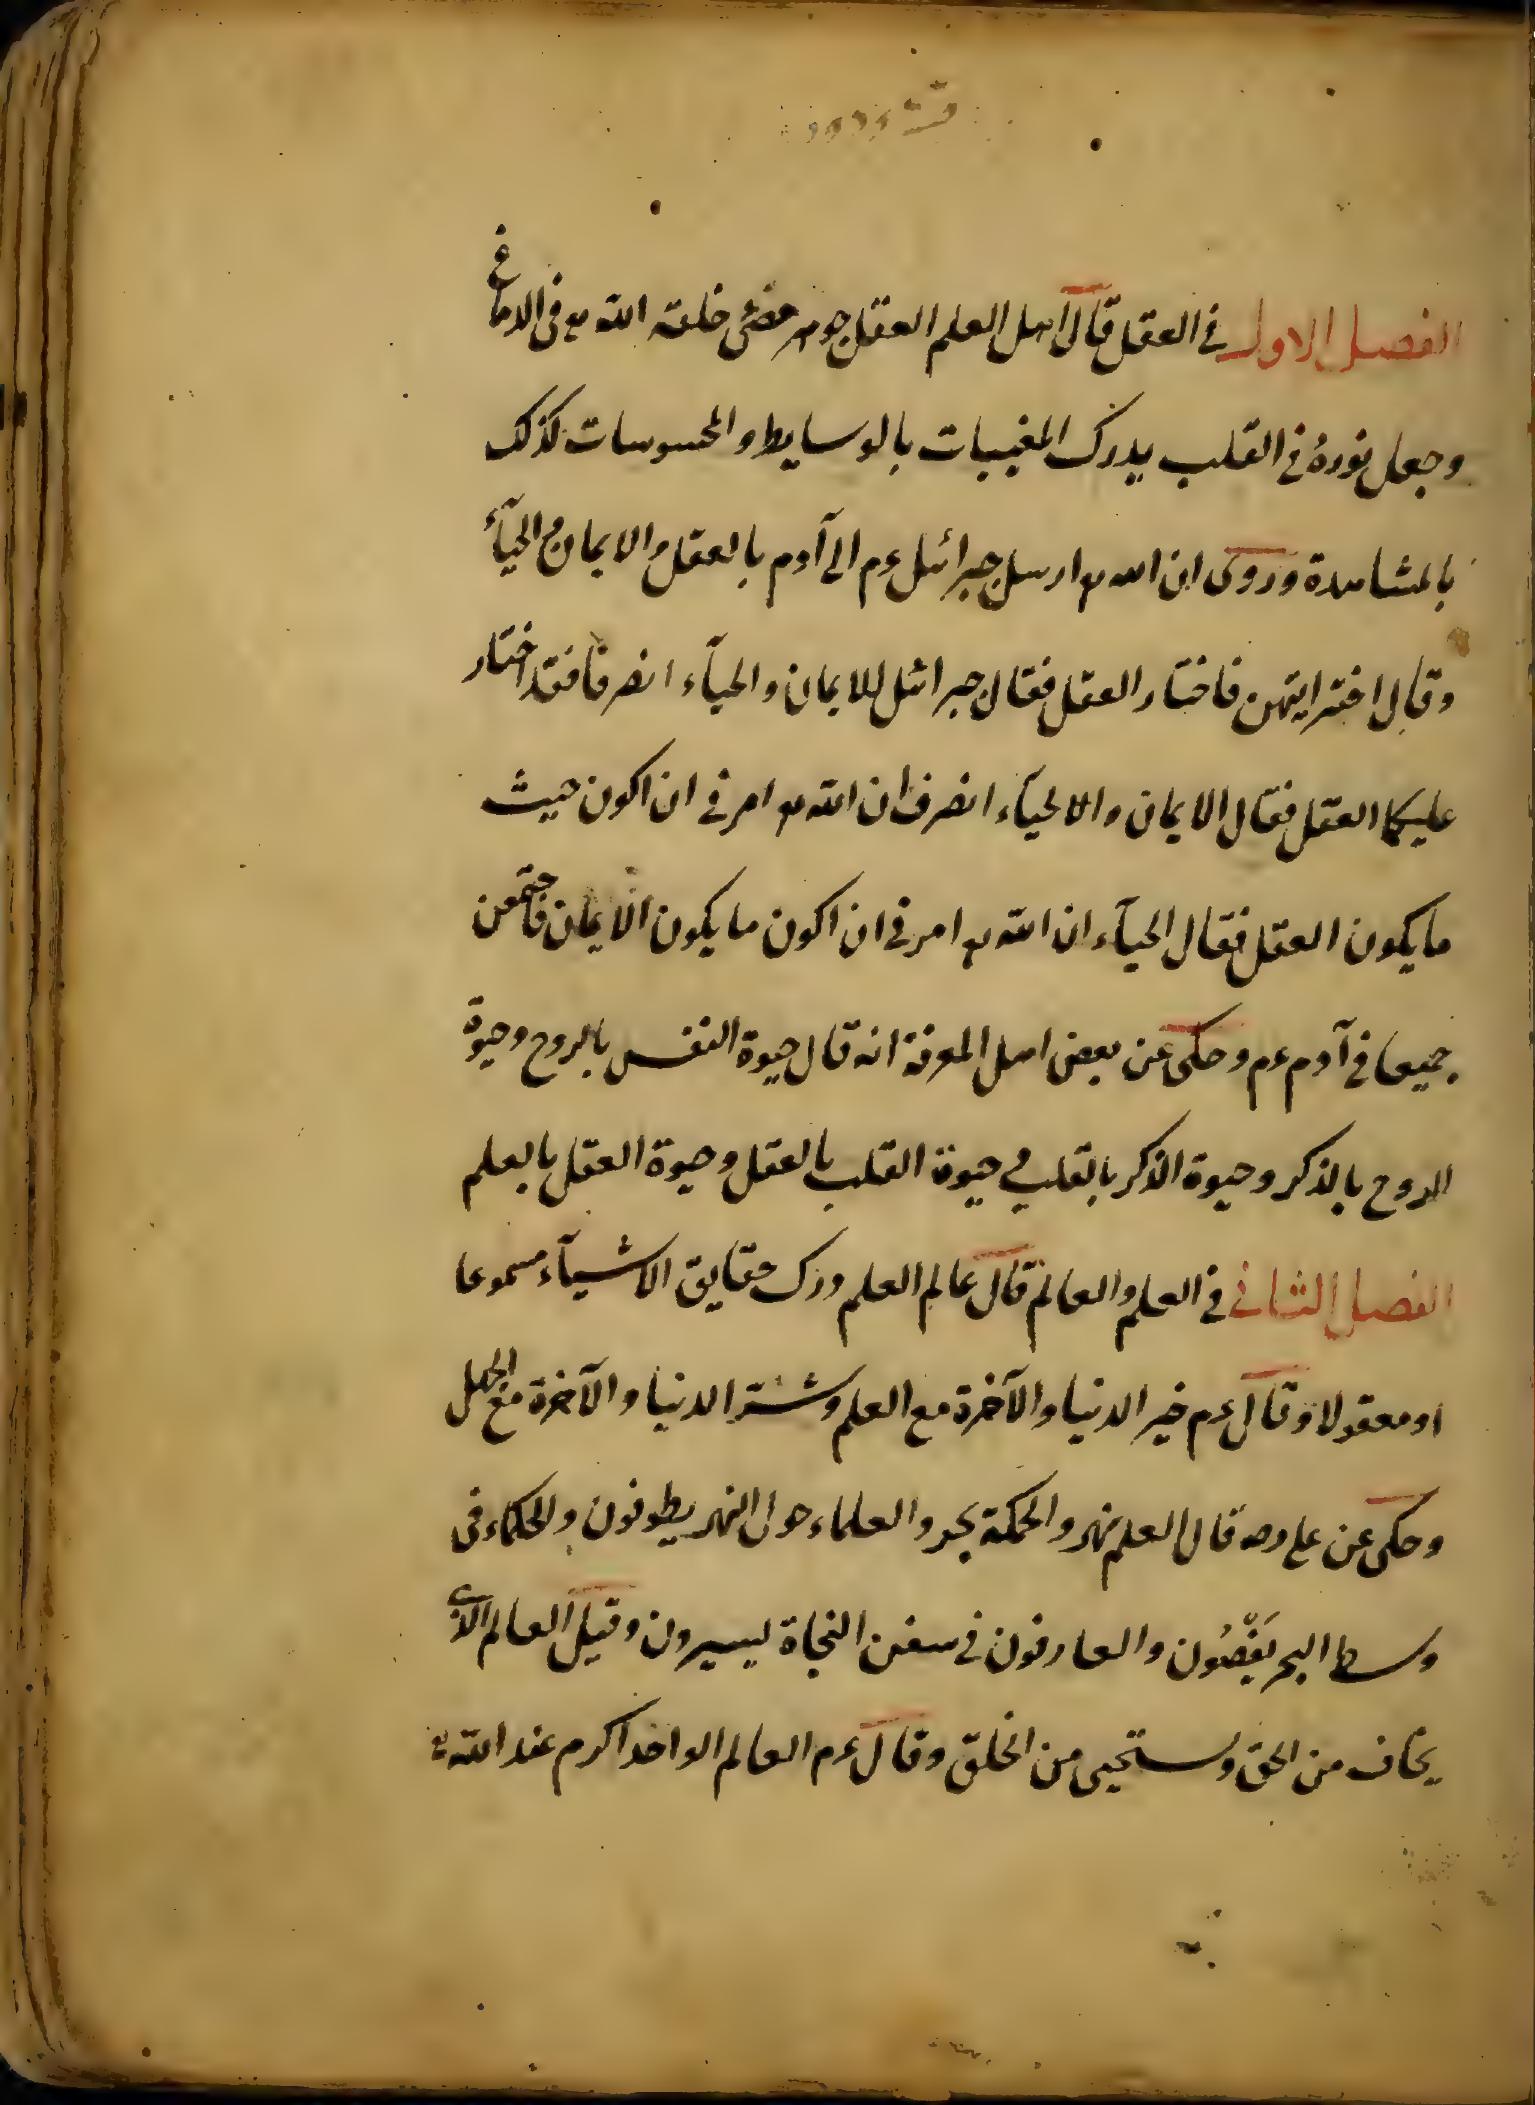 الفصل الاول في العقل قال اهل العلم العقل جوهر مضئ خلقه الله تع في الدماغ
وجعل نوره في القلب يدرك المغيبات بالوسايط والمحسوسات كذلك
بالمشاهدة وروى ان الله تع ارسل جبرائيل عم الى آدم بالعقل والايمان والحيآء
وقال اختر ايتهن فاختار العقل فقال جبرائيل للايمان والحيآء انصرفا فقد اختار
عليكما العقل فقال الايمان والا لحيآء انصرف ان الله تع امرني ان اكون حيث
ما يكون العقل فقال الحيآء ان الله تع امرني ان اكون ما يكون الايمان فاجتمعن
جميعا في آدم عم وحكى عن بعض اهل المعرفة انه قال حيوة النفس بالروح وحيوة
الروح بالذكر وحيوة الذكر بالقلب وحيوة القلب بالعقل وحيوة العقل بالعلم
الفصل الثاني في العلم والعالم قال عالم العلم درك حقايق الاشيآء مسموعا
او معقولا وقال عم خير الدنيا والآخرة مع العلم وشر الدنيا والآخرة مع الجهل
وحكى عن علي رضه قال العلم نهر والحكمة بحر والعلماء حول النهر يطوفون والحكماء في
وسط البحر يغصون والعارفون في سفن النجاة يسيرون وقيل العالم الذي
يخاف من الحق ويستحيى من الخلق وقال عم العالم الواحد اكرم عند الله تع